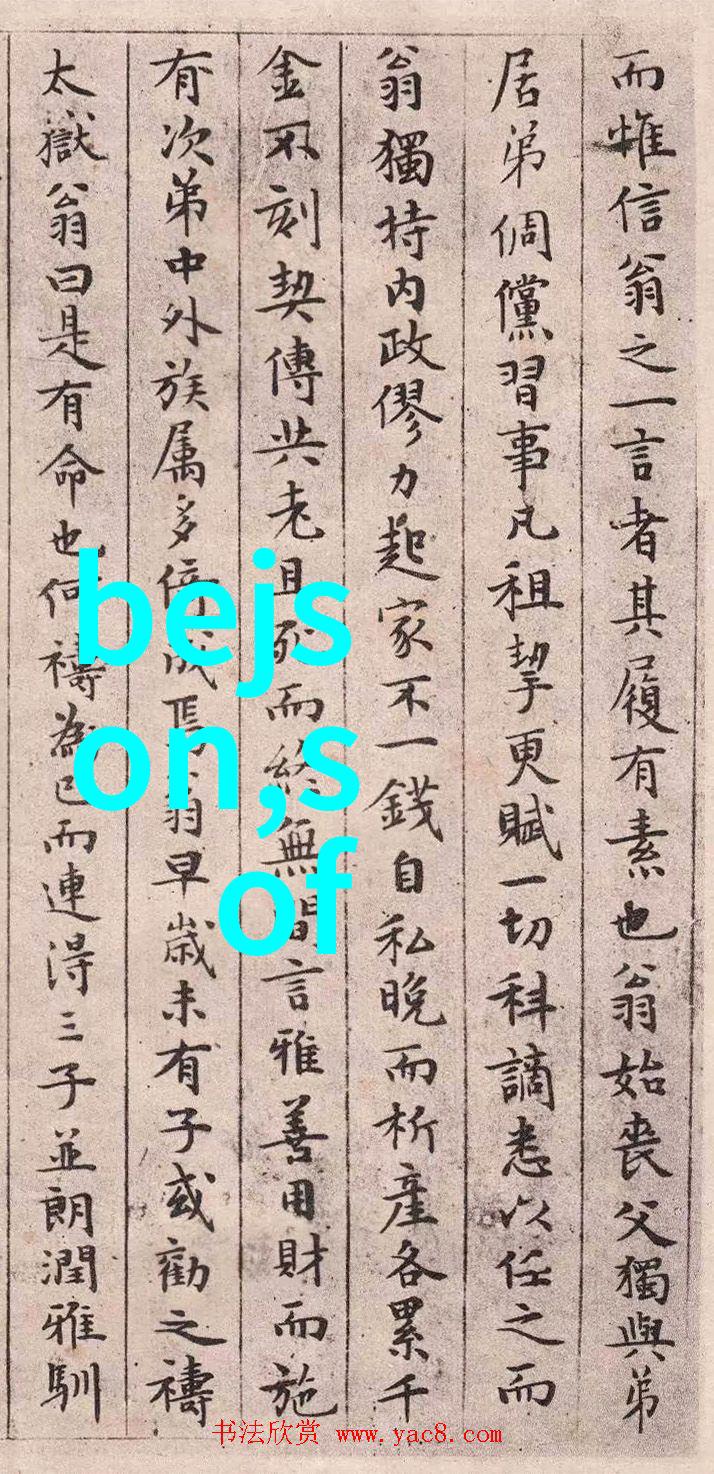 而惟信翁之一言者其履有素也翁始喪父獨與弟
居弟倜儻習事凡租挈更賦一切科謫悉以任之而
翁獨持内政僇力起家不一錢自私晚而析産各累千
金不刻契傳共老且死而終無間言雅善用財而施
有次弟中外族属多倚成焉翁早歳未有子或勸之禱
太嶽翁曰是有命也何禱為已而連得三子並朗潤雅馴
bejs
on,s
of
书法欣赏 www.yac8.com